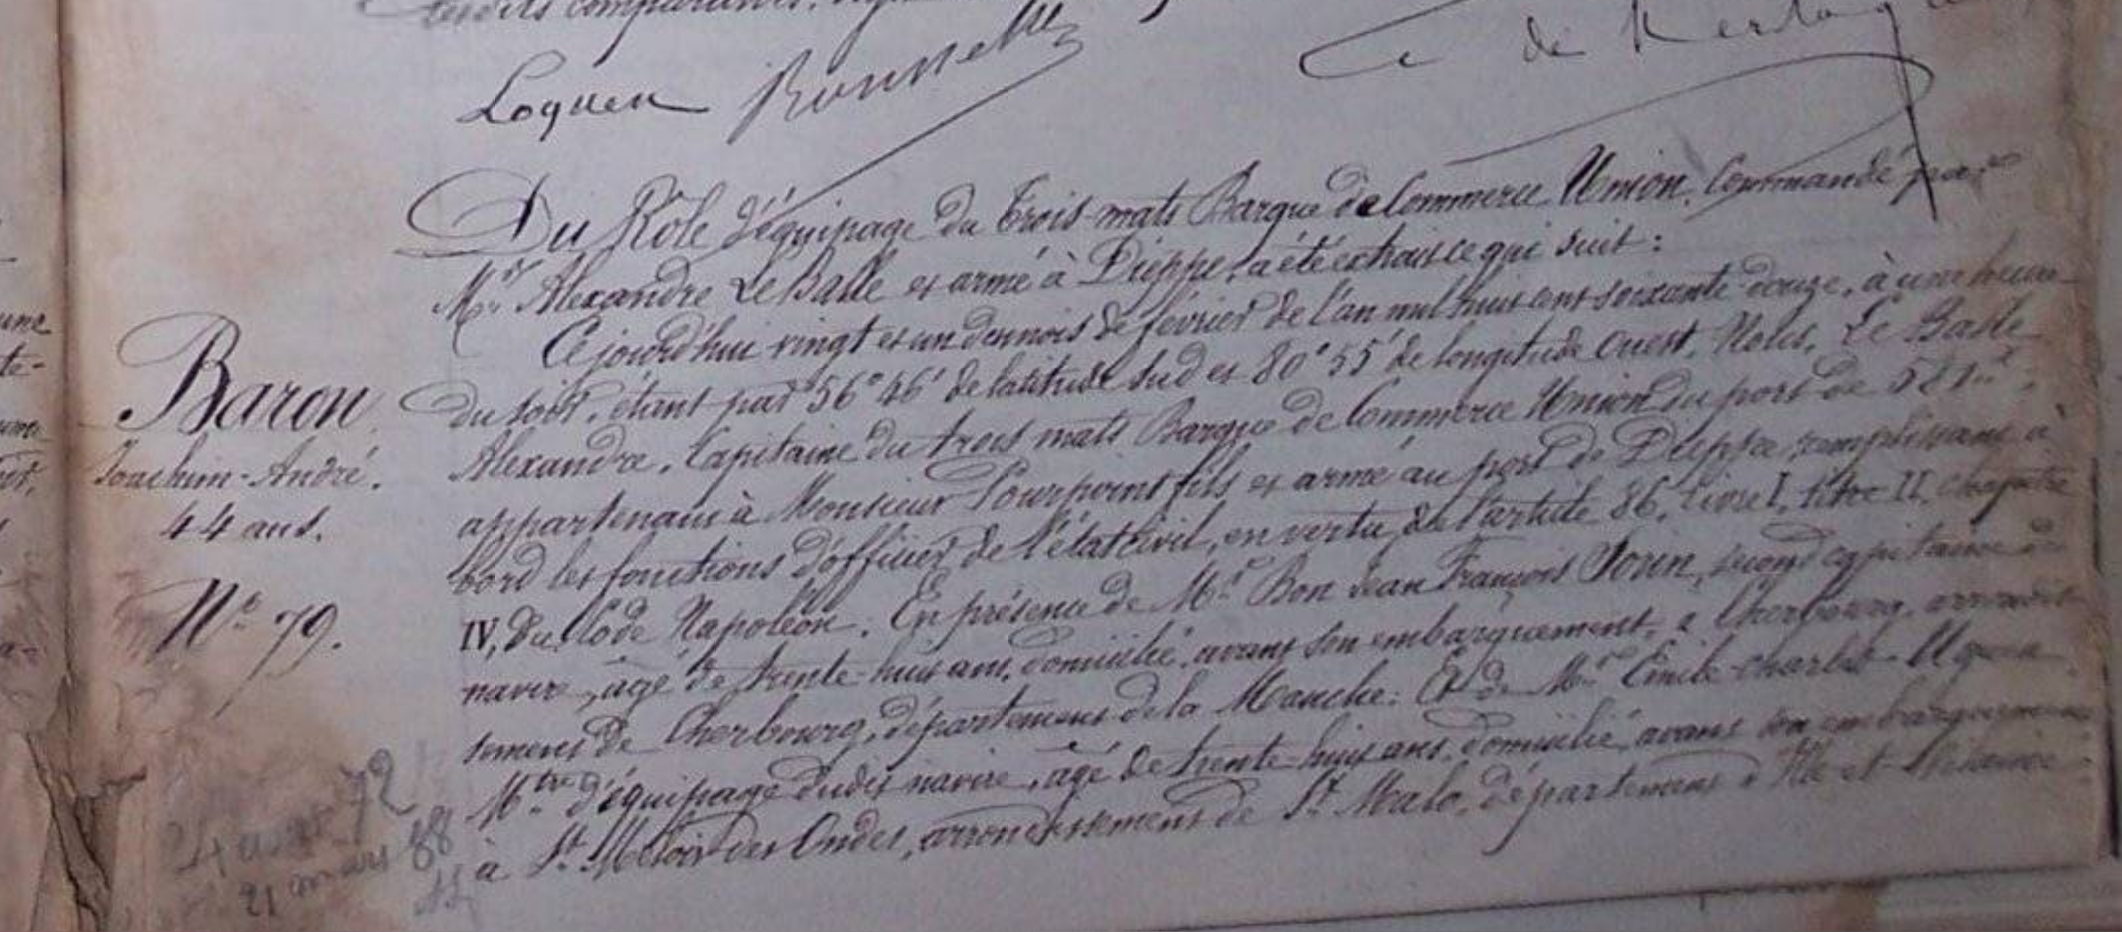 lesdits comparants,
Loquen Roussel
de
Du Rôle d'équipage du trois-mats Barque de Commerce Union, Commandé par
Mr Alexandre Le Balle et armé à Dieppe, a été extrait ce qui suit :
Cejourd'hui vingt et un du mois de février de l'an mil huit cent soixante douze, à une heure
du soir, étant par 56° 46' de latitude Sud et 80° 55' de longitude Ouest. Nous, Le Balle
Alexandre, Capitaine du trois mats Barque de Commerce Union du port de
appartenant à Monsieur Pourpoint fils et armé au port de Dieppe, remplissant à
bord les fonctions d'officier de l'état civil, en vertu de l'article 86, livre I, titre II, chapitre
IV, du Code Napoléon. En présence de Mr Bon Jean François second capitaine du
navire, âgé de trente-huit ans, domicilié, avant son embarquement, à Cherbourg, arrondis-
sement de Cherbourg, département de la Manche : Et de Mr Emile-Charles-
Mtre d'équipage dudit navire, âgé de trente-huit ans, domicilié, avant son embarquement
à St Méloir des Ondes, arrondissement de St Malo, département d'Ille et Vilaine
Baron
Joachim-André.
44 ans.
No 79.
72
21 mars 88